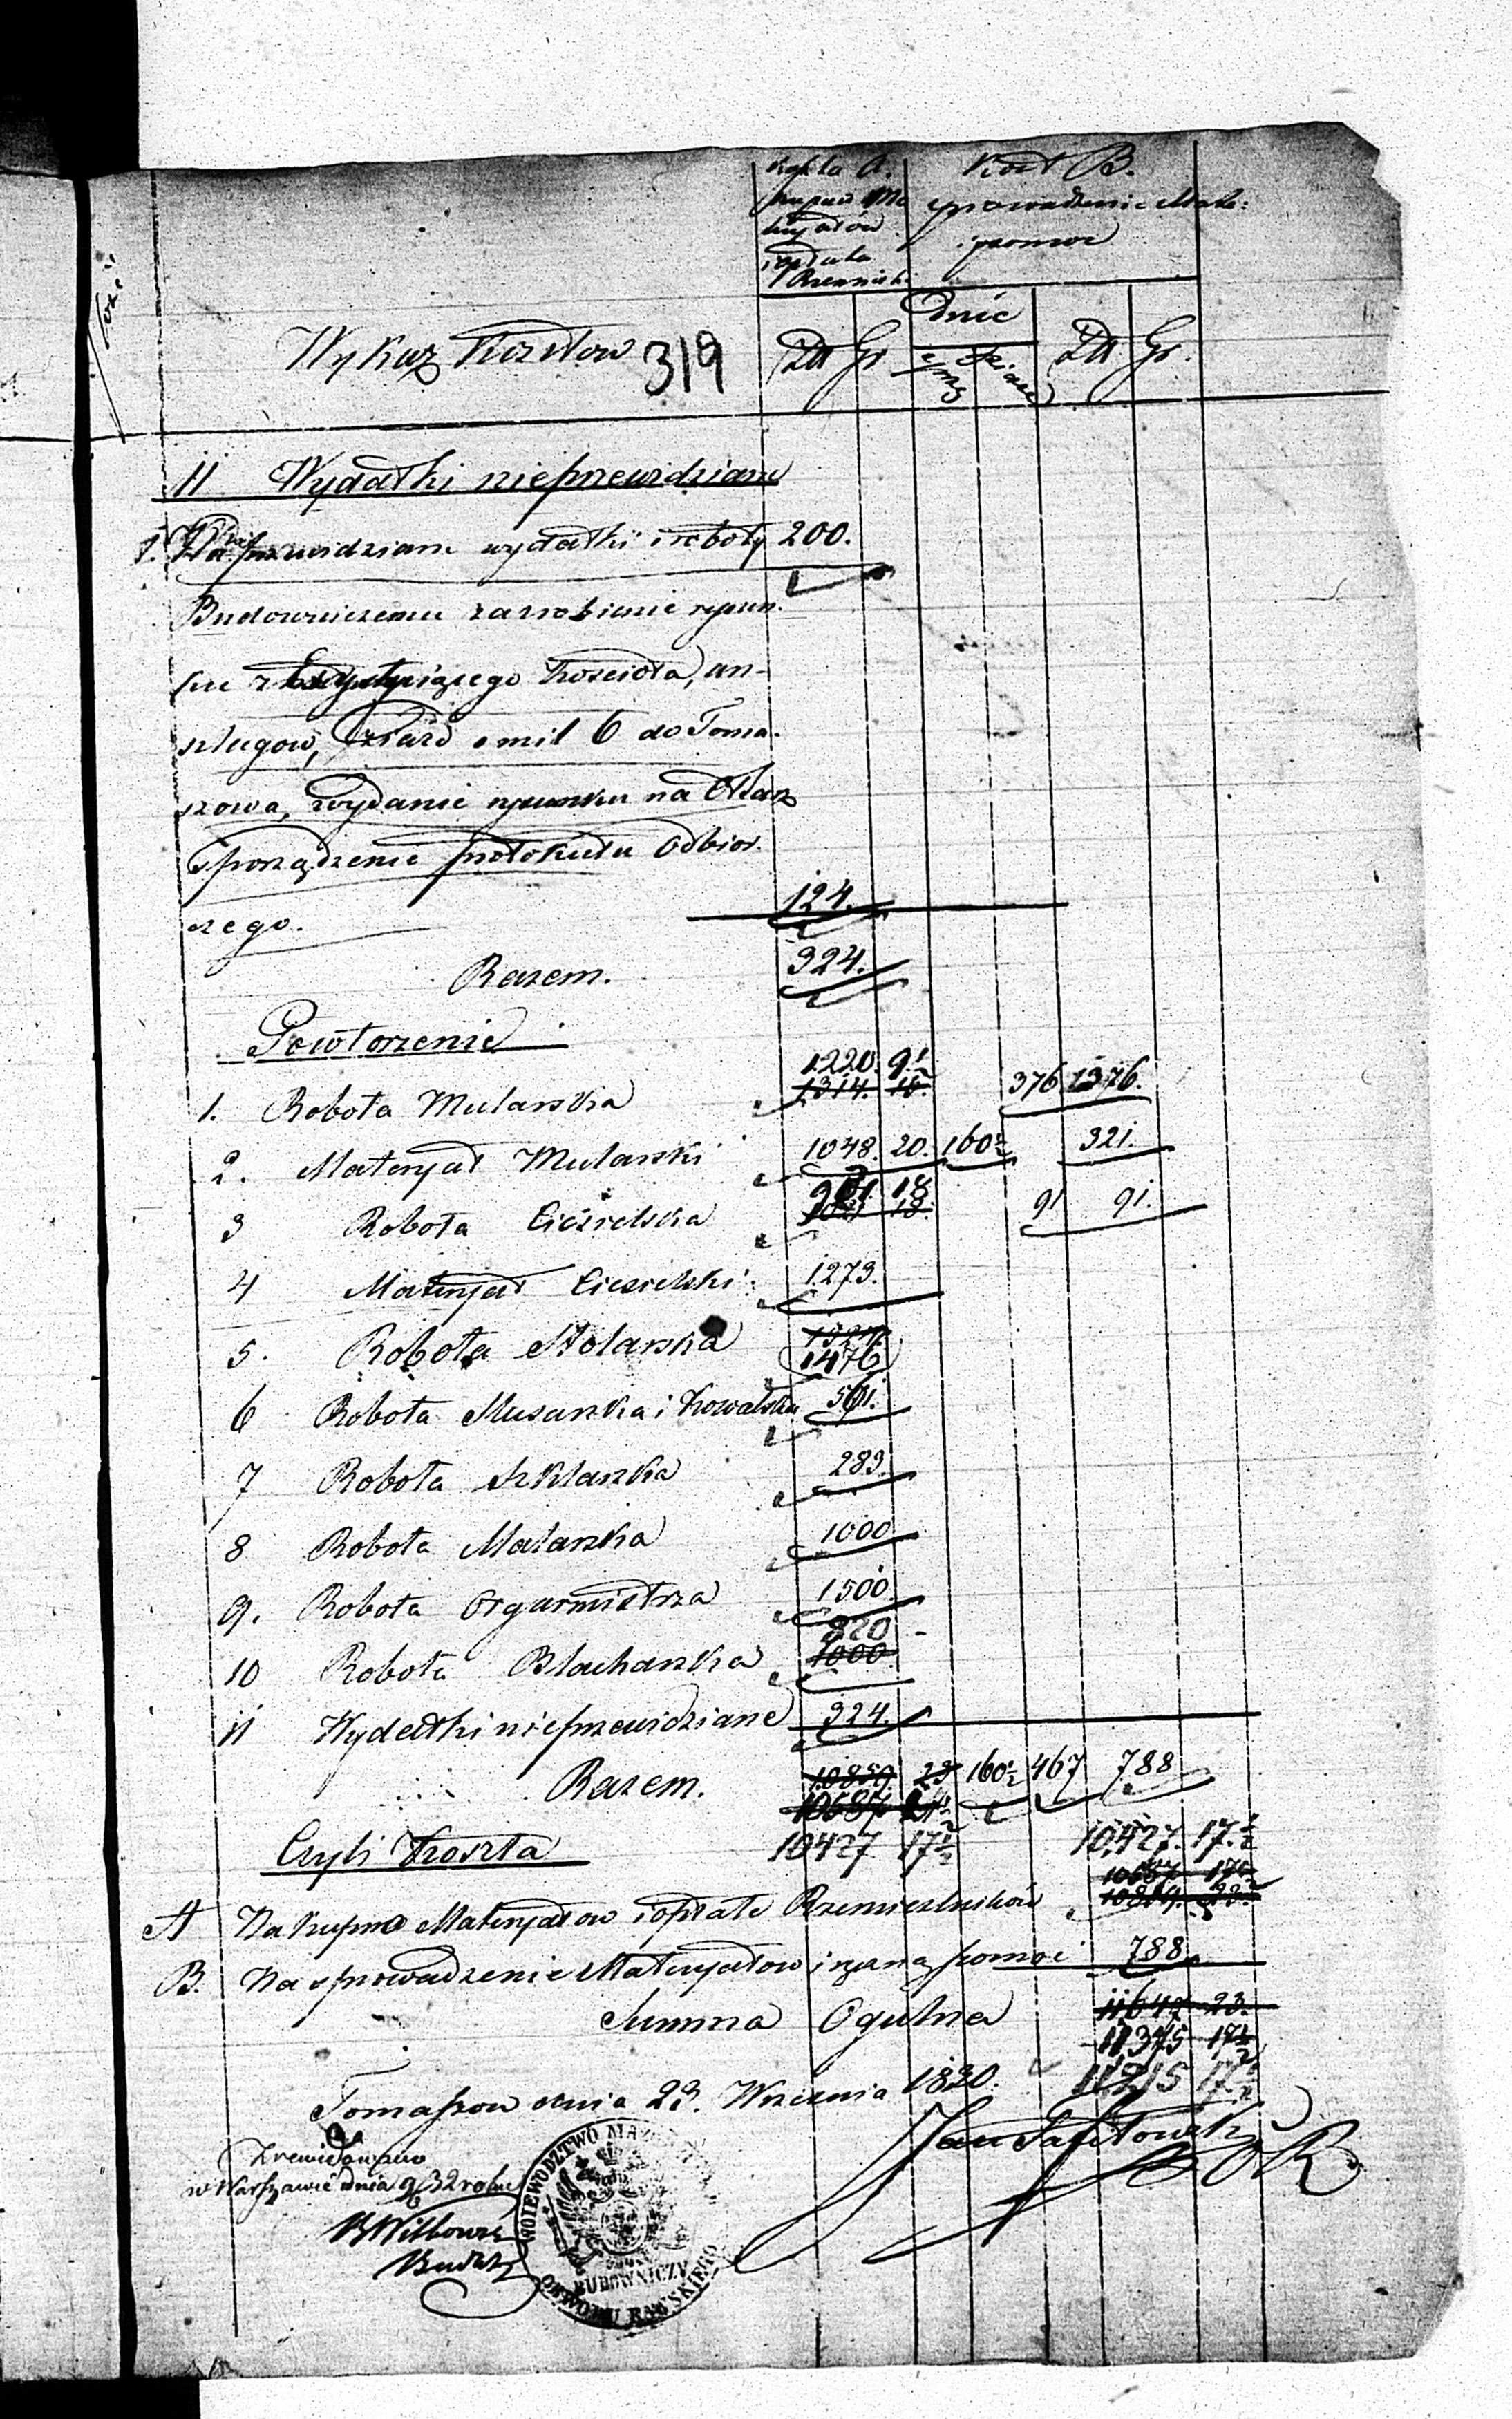 Koszta A.
Koszt B.
sprowadzenie Mate:
i pomoc
Dnie
Wykaz Kosztow 319 Złł Gr Złł Gr.
11 Wydatki nieprzewidziane
1. Na nieprzewidziane wydatki i roboty 200.
Budowniczemu za zrobienie rysun.
Kościoła, an-
szlagow, Zjazd o mil 6 do Toma.
szowa, wydanie rysunku na Ołtarz
Sporządzenie protokułu Odbior.
czego. 124.
Razem. 324.
Powtorzenie
1220. 9½
1. Robota Mularska 1314. 18. 376 1376.
2. Materyał Mularski 1048. 20. 160½ 321.
3 Robota Ciesielska 18 91 91.
4 Materyał Ciesielski 1273.
5. Robota Stolarska 1476
6 Robota Slusarska i Kowalska 561.
7 Robota Szklarska 283.
8 Robota Malarska 1000
9. Robota Organmistrza 1500
820
10 Robota Blacharska 1000
11 Wydatki nieprzewidziane 324.
Razem. 10859. 23 160½ 467 788
10687
Czyli Koszta 10427 17½ 10,427. 17.½
A Na kupno Materyałow i opłatę Rzemieslnikow
B. Na sprowadzenie Materyałow i ręczną pomoc 788
Summa Ogulna 11647 23.
11375 17½
11215 17½
Tomaszow dnia 23. Wrzesnia 1830.
Zrewidowano
w Warszawie dnia 9/3 32 roku
WOIEWODZTWO MA
BUDOWNICZY
OBWODU RAWSKIEGO